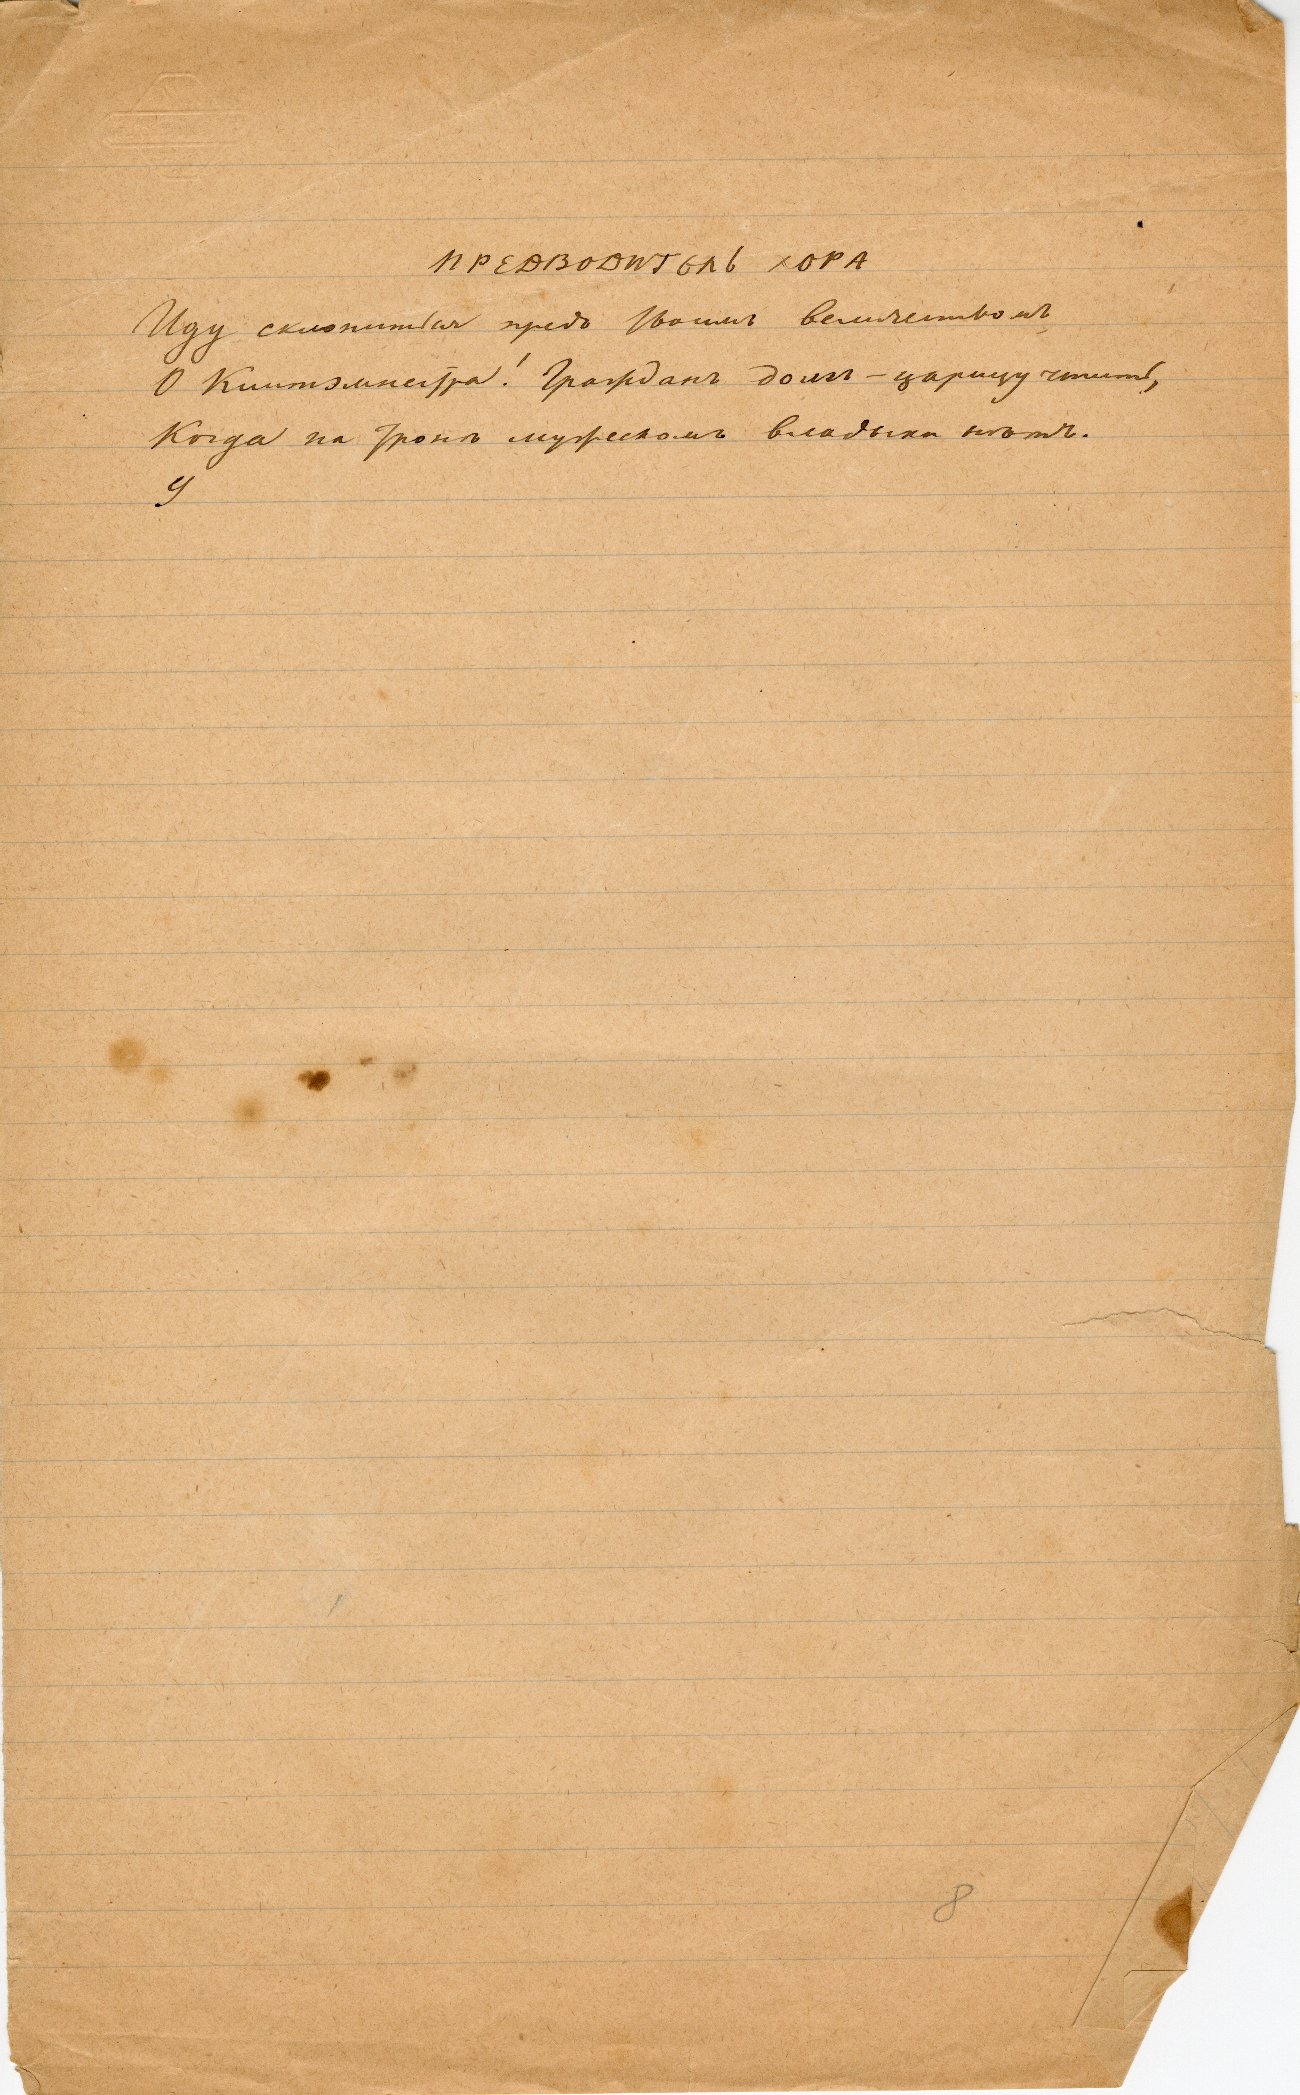 ПРЕДВОДИТЕЛЬ ХОРА
Иду склониться предъ твоимъ величествомъ,
О Клитэмнестра! Гражданъ долгъ – царицу чтить,
Когда на тронѣ мужескомъ владыки нѣтъ.
У
8